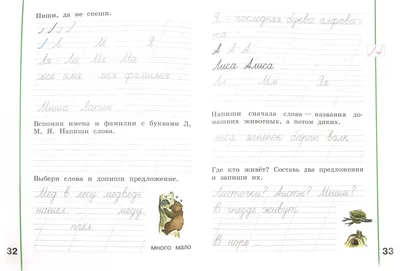 Пиши, да не спеши.
Л А М Я
Ал Ла Мя Ма
моё имя моя фамилия
Миша Лапин
Вспомни имена и фамилии с буквами Л,
М, Я. Напиши слова.
Выбери слова и допиши предложение.
Мёд в лесу медведь
нашёл. ... мёду
... пчёл.
много мало
32
Я – последняя буква алфави-
та
А А А
Лиса Алиса
Ля Ям Яя
Напиши сначала слова — названия до-
машних животных, а потом диких.
лиса ягнёнок баран волк
Где кто живёт? Составь два предложения
и запиши их.
Ласточки? Аисты? Мыши?
В гнезде живут
В норе ...
33